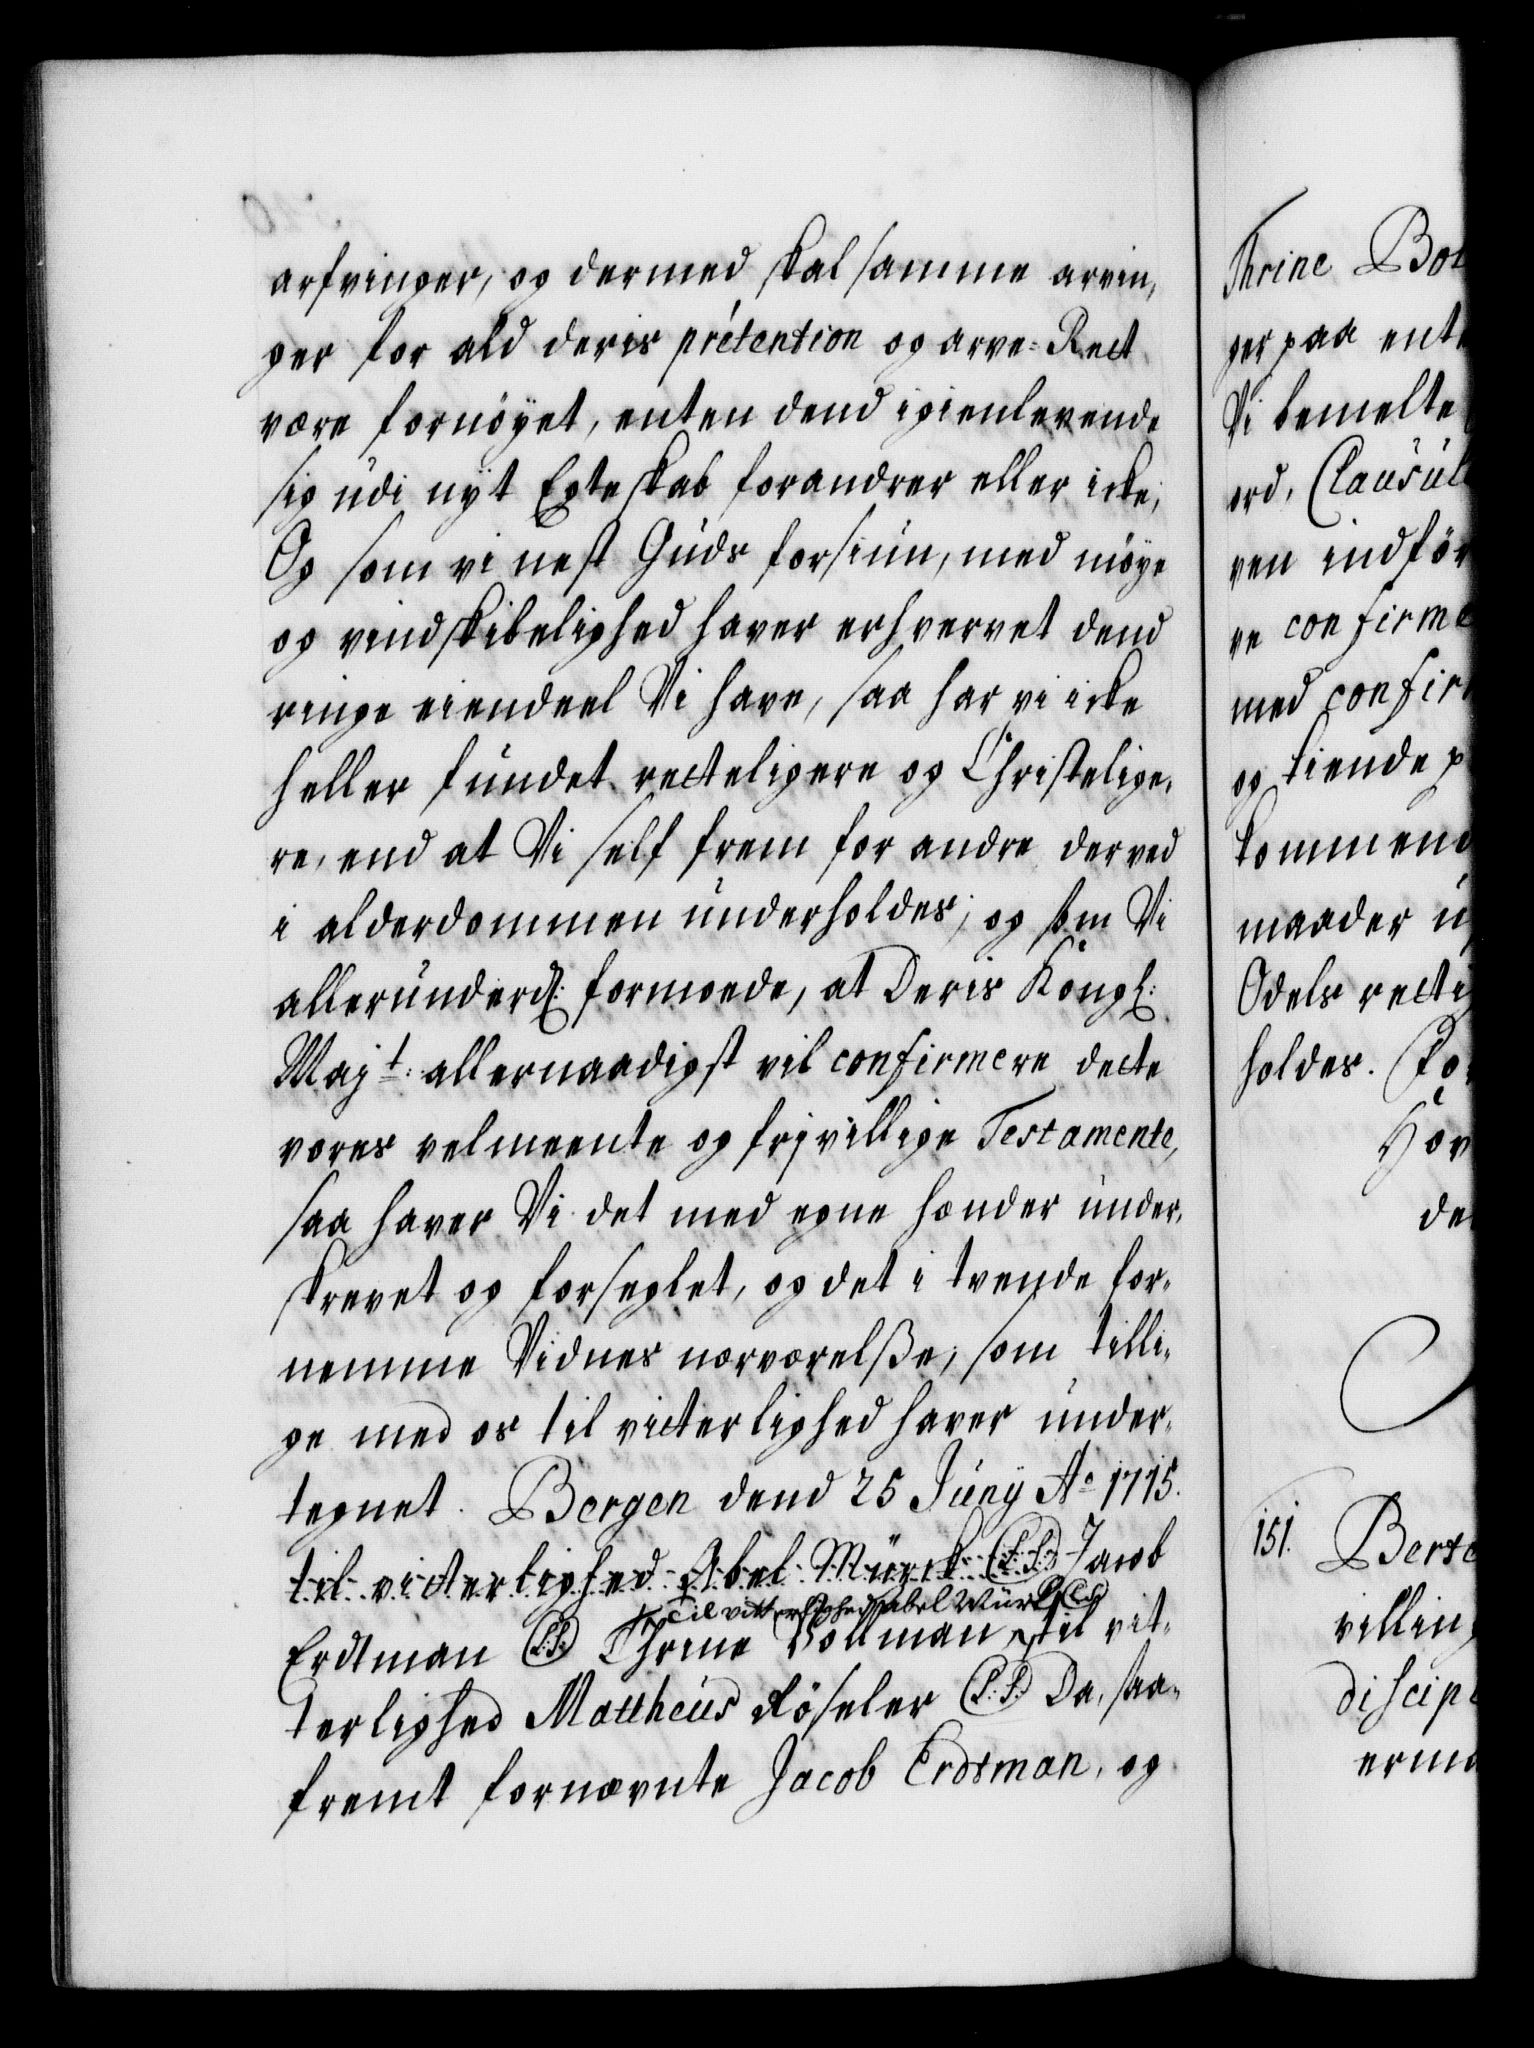 arfvinger, og dermed skal samme arvin,
ger for ald deris prétention og arve-Rect
være fornöyet, enten dend igienlevende
sig udi nyt Egteskab forandrer eller icke,
Og som vi nest Guds forsiun, med möye
og vindskibelighed haver erhvervet dend
ringe eiendeel Vi have, saa har vi icke
heller fundet recteligere og Christelige,
re, end at Vi self frem for andre derved
i alderdommen underholdes; og som Vi
allerunderd: formoede, at Deris Kongl:
Majt: allernaadigst vil confirmere dette
vores velmeente og frivillige Testamente,
saa haver Vi det med egne hænder under,
skrevet og forseglet, og det i tvende for,
nemme Vidnes nærværelße; som tilli,
ge med os til vitterlighed haver under,
tegnet. Bergen dend 25 Junij Ao 1715.
til vitterlighed Abel Mürck (L:S:) Jacob
til vitterlighed Abel Würck (LS)
Erdtman (L:S:) Thrine Bollman, til vit,
terlighed Mattheus Röseler (L:S:) Da, saa,
fremt fornævnte Jacob Erdtman, og
Thrine Bol
ger paa ent
Vi bemelte
ord, Clausul
ven indför
re confirme
med confir
og tiende p
kommend
maader u
Odels recti
holdes.
151. Berte
villin
discipl
erma